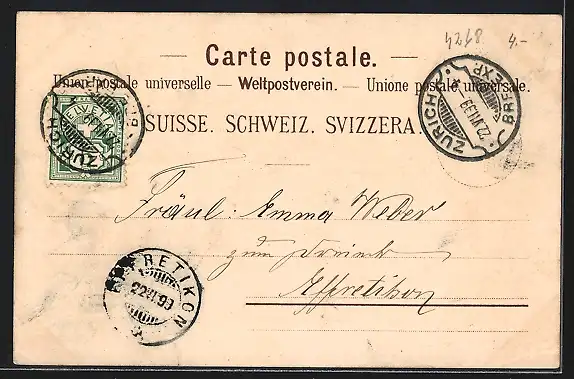 4268 4.-
— Carte postale. —
Union postale universelle — Weltpostverein. — Unione postale universale.
SUISSE. SCHWEIZ. SVIZZERA.
HELVETIA
ZÜRICH
ZÜRICH 22.VI.99 BRF. EXP.
Fräul: Emma Weber
zum
Effretikon
EFFRETIKON 22.VI.99